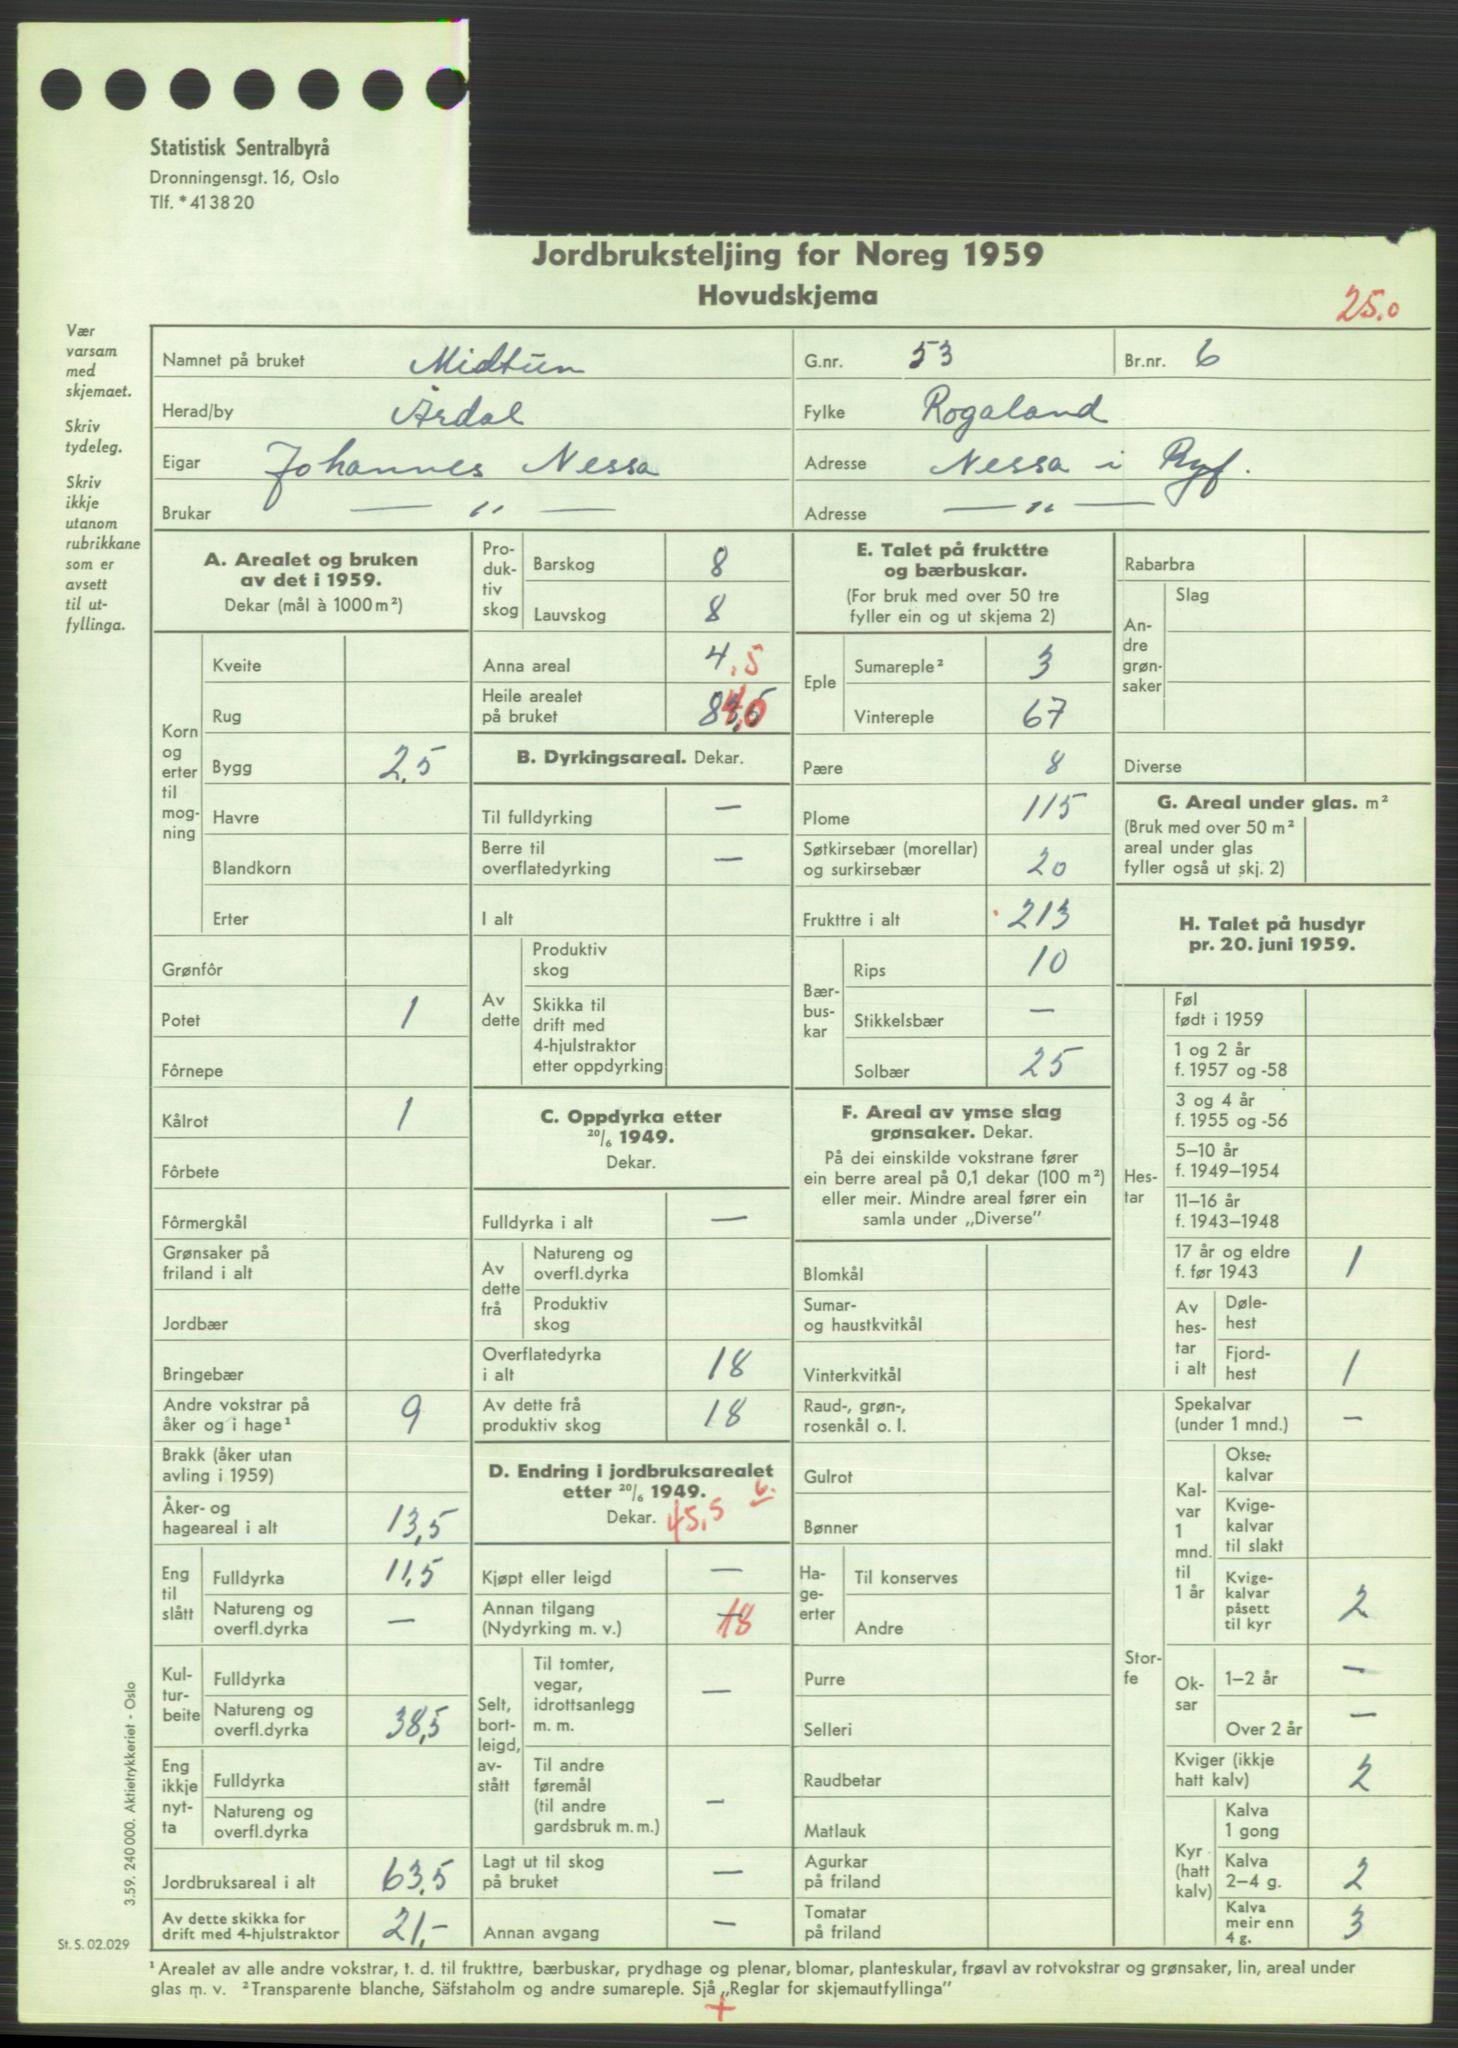 Statistisk Sentralbyrå
Dronningensgt. 16, Oslo
Tlf. * 41 38 20
Jordbruksteljing for Noreg 1959
Hovudskjema
25.0
Vær
varsam
med
skjemaet.
Skriv
tydeleg.
Skriv
ikkje
utanom
rubrikkane
som er
avsett
til ut-
fyllinga.
Namnet på bruket Midtun G.nr. 53 Br.nr. 6
Herad/by Årdal Fylke Rogaland
Eigar Johannes Nessa Adresse Nessa i Ryf.
Brukar — " — Adresse — " —
A. Arealet og bruken
av det i 1959.
Dekar (mål à 1000 m²)
Korn
og
erter
til
mog-
ning
Kveite
Rug
Bygg 2,5
Havre
Blandkorn
Erter
Grønfôr
Potet 1
Fôrnepe
Kålrot 1
Fôrbete
Fôrmergkål
Grønsaker på
friland i alt
Jordbær
Bringebær
Andre vokstrar på
åker og i hage¹ 9
Brakk (åker utan
avling i 1959)
Åker- og
hageareal i alt 13,5
Eng
til
slått
Fulldyrka 11,5
Natureng og
overfl.dyrka —
Kul-
tur-
beite
Fulldyrka
Natureng og
overfl.dyrka 38,5
Eng
ikkje
nyt-
ta
Fulldyrka
Natureng og
overfl.dyrka
Jordbruksareal i alt 63,5
Av dette skikka for
drift med 4-hjulstraktor 21,-
Pro-
duk-
tiv
skog
Barskog 8
Lauvskog 8
Anna areal 4,5
Heile arealet
på bruket
B. Dyrkingsareal. Dekar.
Til fulldyrking —
Berre til
overflatedyrking —
I alt
Av
dette
Produktiv
skog
Skikka til
drift med
4-hjulstraktor
etter oppdyrking
C. Oppdyrka etter
20/6 1949.
Dekar.
Fulldyrka i alt —
Av
dette
frå
Natureng og
overfl.dyrka
Produktiv
skog
Overflatedyrka
i alt 18
Av dette frå
produktiv skog 18
D. Endring i jordbruksarealet
etter 20/6 1949. 6.
Dekar. 45,5
Kjøpt eller leigd —
Annan tilgang
(Nydyrking m. v.) 18
Selt,
bort-
leigd,
av-
stått
Til tomter,
vegar,
idrottsanlegg
m. m. —
Til andre
føremål
(til andre
gardsbruk m. m.) —
Lagt ut til skog
på bruket —
Annan avgang —
E. Talet på frukttre
og bærbuskar.
(For bruk med over 50 tre
fyller ein og ut skjema 2)
Eple
Sumareple² 3
Vintereple 67
Pære 8
Plome 115
Søtkirsebær (morellar)
og surkirsebær 20
Frukttre i alt 213
Bær-
bus-
kar
Rips 10
Stikkelsbær —
Solbær 25
F. Areal av ymse slag
grønsaker. Dekar.
På dei einskilde vokstrane fører
ein berre areal på 0,1 dekar (100 m²)
eller meir. Mindre areal fører ein
samla under „Diverse”
Blomkål
Sumar-
og haustkvitkål
Vinterkvitkål
Raud-, grøn-,
rosenkål o. l.
Gulrot
Bønner
Ha-
ge-
erter
Til konserves
Andre
Purre
Selleri
Raudbetar
Matlauk
Agurkar
på friland
Tomatar
på friland
Rabarbra
An-
dre
grøn-
saker
Slag
Diverse
G. Areal under glas. m²
(Bruk med over 50 m²
areal under glas
fyller også ut skj. 2)
H. Talet på husdyr
pr. 20. juni 1959.
Hes-
tar
Føl
født i 1959
1 og 2 år
f. 1957 og -58
3 og 4 år
f. 1955 og -56
5–10 år
f. 1949–1954
11–16 år
f. 1943–1948
17 år og eldre
f. før 1943 1
Av
hes-
tar
i alt
Døle-
hest
Fjord-
hest 1
Stor-
fe
Spekalvar
(under 1 mnd.) —
Kal-
var
1
mnd.
til
1 år
Okse-
kalvar
Kvige-
kalvar
til slakt
Kvige-
kalvar
påsett
til kyr 2
Ok-
sar
1–2 år —
Over 2 år —
Kviger (ikkje
hatt kalv) 2
Kyr
(hatt
kalv)
Kalva
1 gong
Kalva
2–4 g. 2
Kalva
meir enn
4 g. 3
3.59. 240 000. Aktietrykkeriet - Oslo
St. S. 02.029
¹ Arealet av alle andre vokstrar, t. d. til frukttre, bærbuskar, prydhage og plenar, blomar, planteskular, frøavl av rotvokstrar og grønsaker, lin, areal under
glas m. v. ² Transparente blanche, Säfstaholm og andre sumareple. Sjå „Reglar for skjemautfyllinga”
+